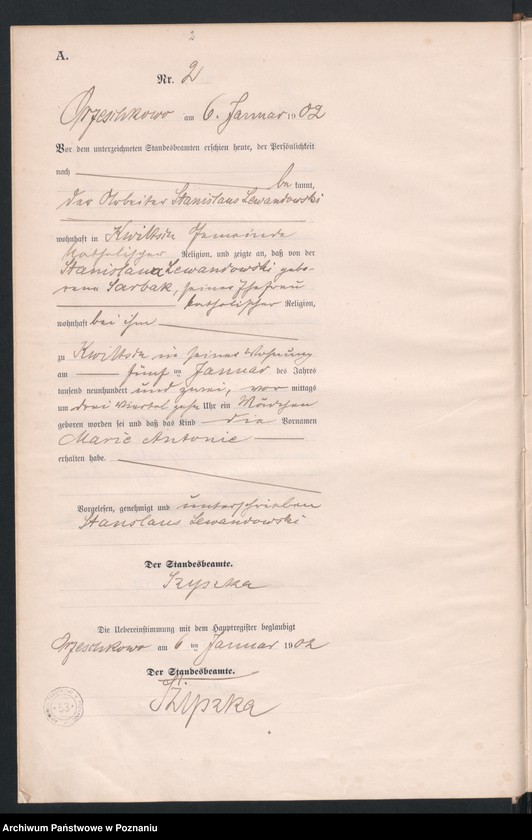 2
A.
Nr. 2
Orzeschkowo am 6. Januar 1902
Vor dem unterzeichneten Standesbeamten erschien heute, der Persönlichkeit
nach be kannt,
der Arbeiter Stanislaus Lewandowski
wohnhaft in Gemeinde
katholischer Religion, und zeigte an, daß von der
Stanislaua Lewandowski gebo-
rene Sarbak, seiner Ehefrau
katholischer Religion,
wohnhaft bei ihm
zu in seiner Wohnung
am fünf ten Januar des Jahres
tausend neunhundert und zwei, vor mittags
um drei Viertel zehn Uhr ein Mädchen
geboren worden sei und daß das Kind die Vornamen
Marie Antonie
erhalten habe.
Vorgelesen, genehmigt und unterschrieben
Stanslaus Lewandowski
Der Standesbeamte.
Szyszka
Die Uebereinstimmung mit dem Hauptregister beglaubigt
Orzeschkowo am 6 ten Januar 1902
Der Standesbeamte.
Szyszka
53
Archiwum Państwowe w Poznaniu